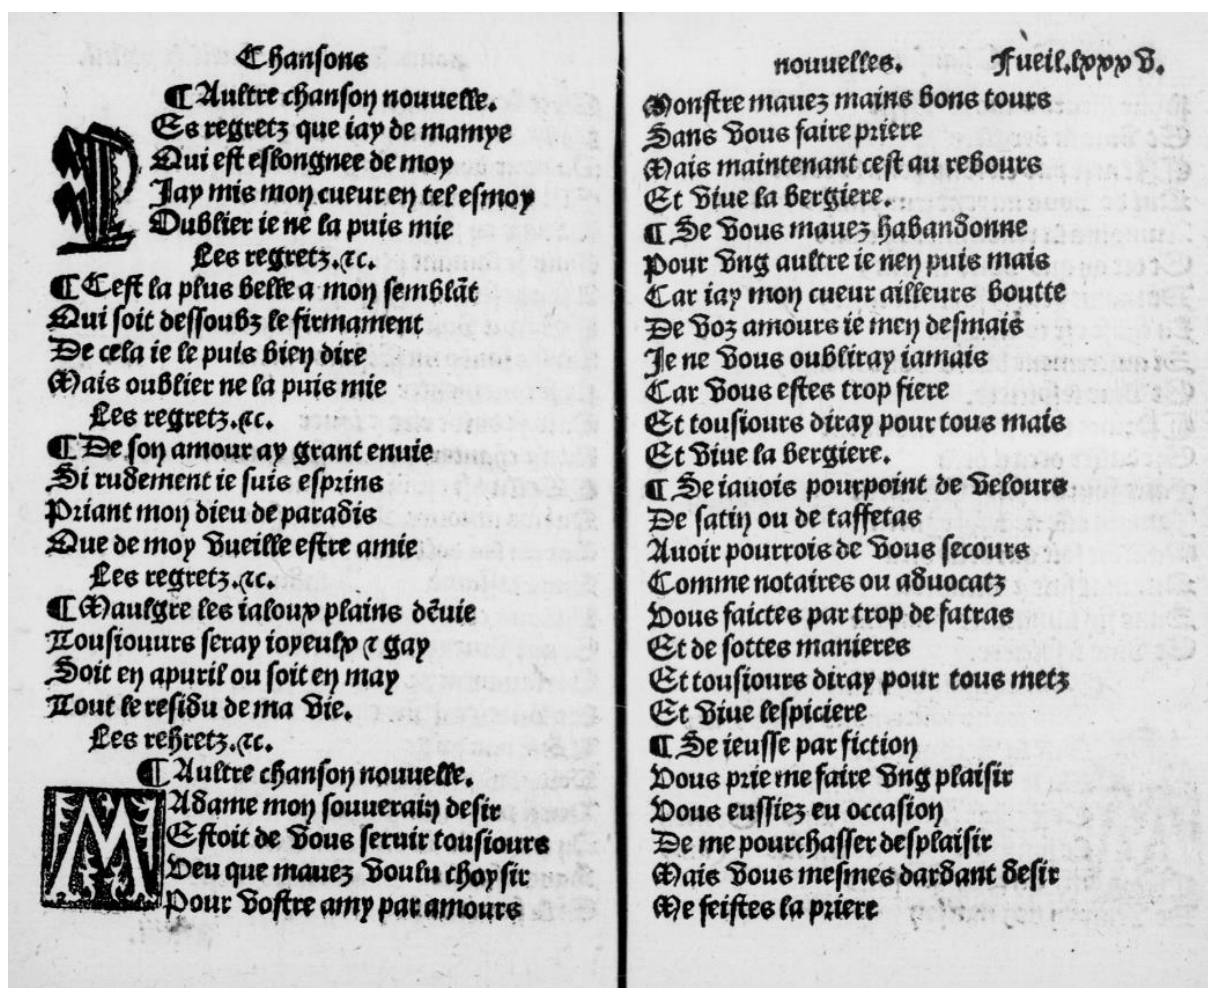 Chansons
¶ Aultre chanson nouuelle.
LEs regretz que iay de mamye
Qui est eslongnee de moy
Jay mis mon cueur en tel esmoy
Oublier ie ne la puis mie
Les regretz. ⁊c.
¶ Cest la plus belle a mon semblāt
Qui soit dessoubz le firmament
De cela ie le puis bien dire
Mais oublier ne la puis mie
Les regretz. ⁊c.
¶ De son amour ay grant enuie
Si rudement ie suis esprins
Priant mon dieu de paradis
Que de moy vueille estre amie
Les regretz. ⁊c.
¶ Maulgre les ialoux plains dēuie
Tousiouurs seray ioyeulx ⁊ gay
Soit en apuril ou soit en may
Tout le residu de ma vie.
Les rehretz. ⁊c.
¶ Aultre chanson nouuelle.
MAdame mon souuerain desir
Estoit de vous seruir tousiours
Veu que mauez voulu choysir
Pour vostre amy par amours
nouuelles. Fueil.lxxxv.
Monstre mauez mains bons tours
Sans vous faire priere
Mais maintenant cest au rebours
Et viue la bergiere.
¶ Se vous mauez habandonne
Pour vng aultre ie nen puis mais
Car iay mon cueur ailleurs boutte
De voz amours ie men desmais
Je ne vous oubliray iamais
Car vous estes trop fiere
Et tousiours diray pour tous mais
Et viue la bergiere.
¶ Se iauois pourpoint de velours
De satin ou de taffetas
Auoir pourrois de vous secours
Comme notaires ou aduocatz
Vous faictes par trop de fatras
Et de sottes manieres
Et tousiours diray pour tous metz
Et viue lespiciere
¶ Se ieusse par fiction
Vous prie me faire vng plaisir
Vous eussiez eu occasion
De me pourchasser desplaisir
Mais vous mesmes dardant desir
Me feistes la priere